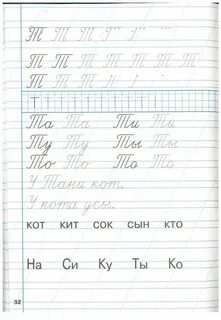 Т Т Т Т Г I
Т Т Т Т Т Т Т
Т Т Т Н I
Т
Та Та Ти Ти
Ту Ту Ты Ты
То То То То
У Тани кот.
У кота усы.
кот кит сок сын кто
На Си Ку Ты Ко
32